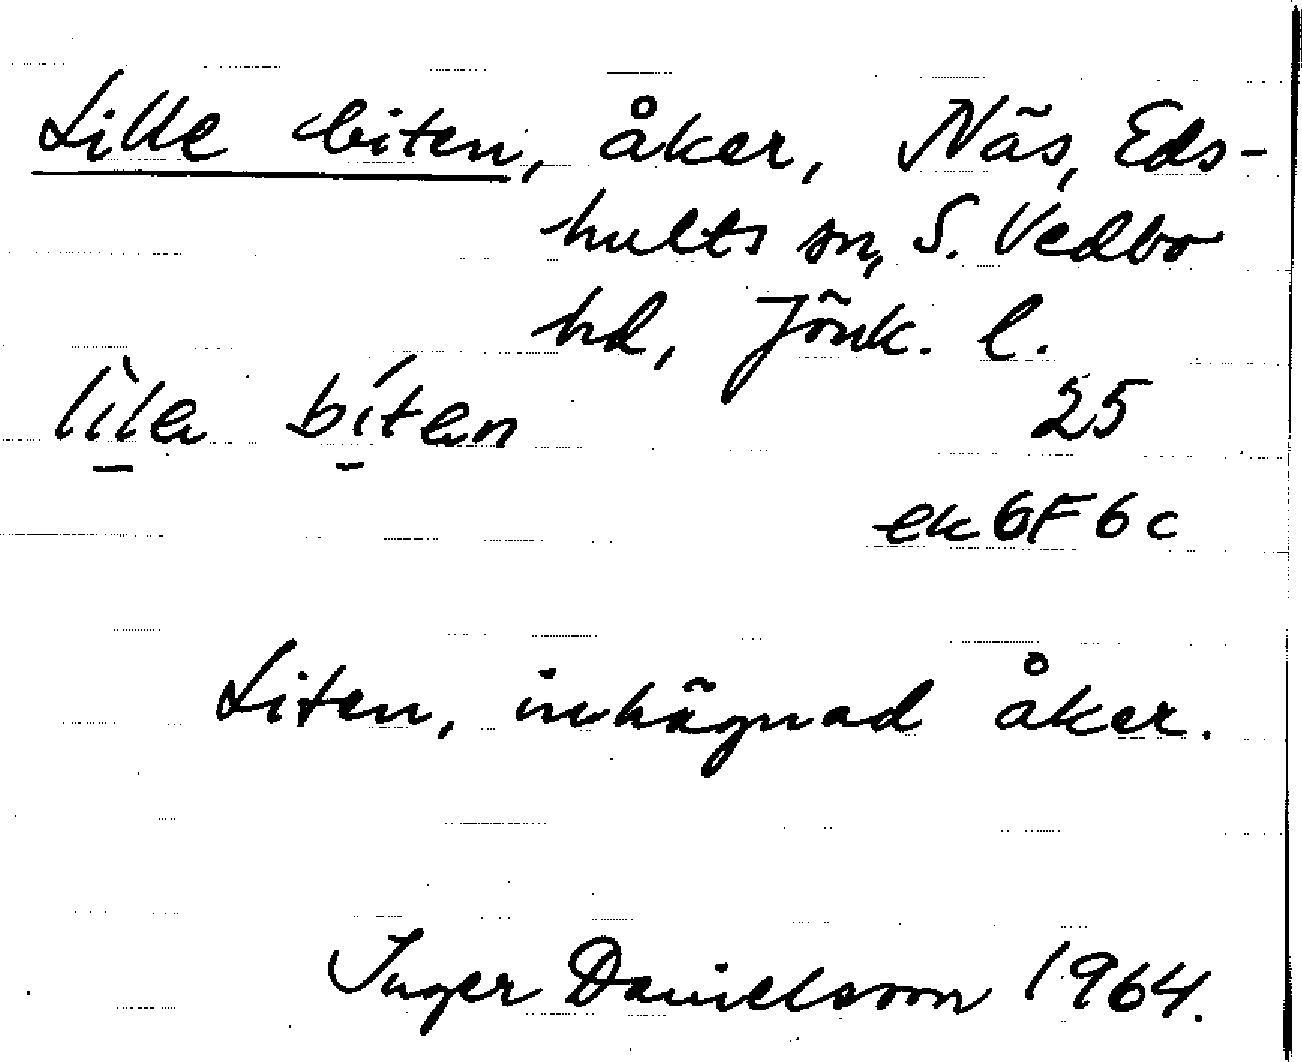 Lille biten, åker, Näs, Eds-
hults sn, S. Vedbo
hd, Jönk. l.
lìla bítan 25
ek 6F 6c
Liten, inhägnad åker.
Inger Danielsson 1964.